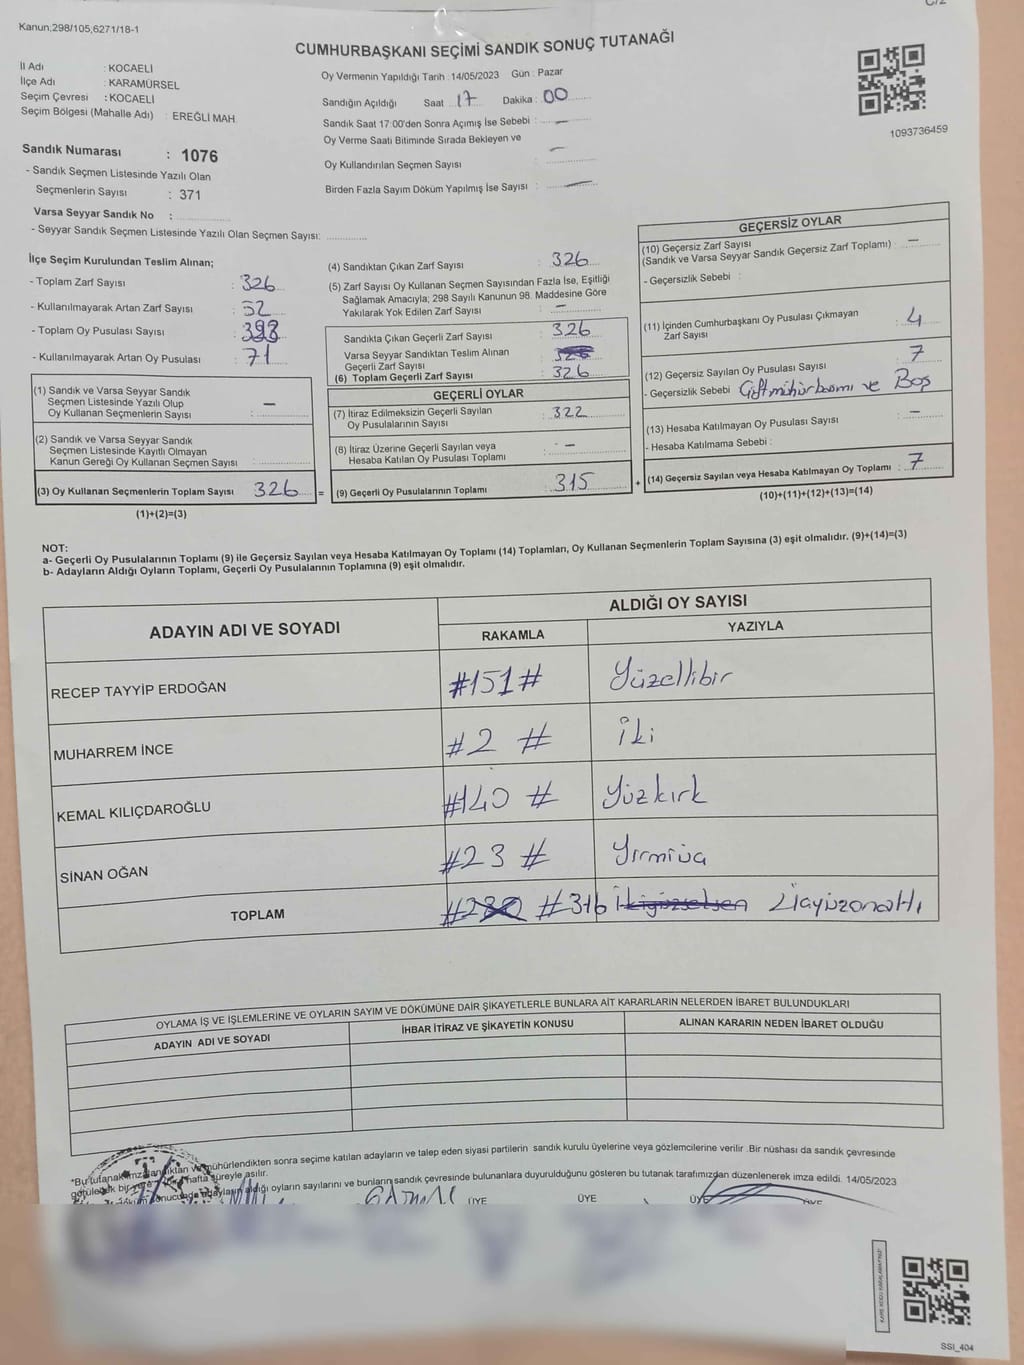 Kanun;298/105,6271/18-1
CUMHURBAŞKANI SEÇİMİ SANDIK SONUÇ TUTANAĞI
İl Adı : KOCAELİ
İlçe Adı : KARAMÜRSEL
Seçim Çevresi : KOCAELİ
Seçim Bölgesi (Mahalle Adı) : EREĞLİ MAH.
Sandık Numarası : 1076
- Sandık Seçmen Listesinde Yazılı Olan
Seçmenlerin Sayısı : 371
Varsa Seyyar Sandık No :
- Seyyar Sandık Seçmen Listesinde Yazılı Olan Seçmen Sayısı:
Oy Vermenin Yapıldığı Tarih : 14/05/2023 Gün : Pazar
Sandığın Açıldığı Saat : 17 Dakika : 00
Sandık Saat 17:00'den Sonra Açımış İse Sebebi : —
Oy Verme Saati Bitiminde Sırada Bekleyen ve
Oy Kullandırılan Seçmen Sayısı —
Birden Fazla Sayım Döküm Yapılmış İse Sayısı : —
1093736459
İlçe Seçim Kurulundan Teslim Alınan;
- Toplam Zarf Sayısı : 326
- Kullanılmayarak Artan Zarf Sayısı : 52
- Toplam Oy Pusulası Sayısı :
- Kullanılmayarak Artan Oy Pusulası : 71
(1) Sandık ve Varsa Seyyar Sandık
Seçmen Listesinde Yazılı Olup
Oy Kullanan Seçmenlerin Sayısı : —
(2) Sandık ve Varsa Seyyar Sandık
Seçmen Listesinde Kayıtlı Olmayan
Kanun Gereği Oy Kullanan Seçmen Sayısı :
(3) Oy Kullanan Seçmenlerin Toplam Sayısı 326 =
(1)+(2)=(3)
(4) Sandıktan Çıkan Zarf Sayısı : 326
(5) Zarf Sayısı Oy Kullanan Seçmen Sayısından Fazla İse, Eşitliği
Sağlamak Amacıyla; 298 Sayılı Kanunun 98. Maddesine Göre
Yakılarak Yok Edilen Zarf Sayısı : —
Sandıkta Çıkan Geçerli Zarf Sayısı : 326
Varsa Seyyar Sandıktan Teslim Alınan
Geçerli Zarf Sayısı :
(6) Toplam Geçerli Zarf Sayısı : 326
GEÇERLİ OYLAR
(7) İtiraz Edilmeksizin Geçerli Sayılan
Oy Pusulalarının Sayısı : 322
(8) İtiraz Üzerine Geçerli Sayılan veya
Hesaba Katılan Oy Pusulası Toplamı : —
(9) Geçerli Oy Pusulalarının Toplamı : 315 +
GEÇERSİZ OYLAR
(10) Geçersiz Zarf Sayısı
(Sandık ve Varsa Seyyar Sandık Geçersiz Zarf Toplamı) : —
- Geçersizlik Sebebi :
(11) İçinden Cumhurbaşkanı Oy Pusulası Çıkmayan
Zarf Sayısı : 4
(12) Geçersiz Sayılan Oy Pusulası Sayısı : 7
- Geçersizlik Sebebi : Çift mühür basımı ve Boş
(13) Hesaba Katılmayan Oy Pusulası Sayısı : —
- Hesaba Katılmama Sebebi :
(14) Geçersiz Sayılan veya Hesaba Katılmayan Oy Toplamı : 7
(10)+(11)+(12)+(13)=(14)
NOT:
a- Geçerli Oy Pusulalarının Toplamı (9) ile Geçersiz Sayılan veya Hesaba Katılmayan Oy Toplamı (14) Toplamları, Oy Kullanan Seçmenlerin Toplam Sayısına (3) eşit olmalıdır. (9)+(14)=(3)
b- Adayların Aldığı Oyların Toplamı, Geçerli Oy Pusulalarının Toplamına (9) eşit olmalıdır.
ADAYIN ADI VE SOYADI
ALDIĞI OY SAYISI
RAKAMLA YAZIYLA
RECEP TAYYİP ERDOĞAN #151# Yüzellibir
MUHARREM İNCE #2 # İki
KEMAL KILIÇDAROĞLU #140 # Yüzkırk
SİNAN OĞAN #23 # Yirmiüç
TOPLAM #280 #316 ikiyüzseksen Üçyüzonaltı
OYLAMA İŞ VE İŞLEMLERİNE VE OYLARIN SAYIM VE DÖKÜMÜNE DAİR ŞİKAYETLERLE BUNLARA AİT KARARLARIN NELERDEN İBARET BULUNDUKLARI
ADAYIN ADI VE SOYADI İHBAR İTİRAZ VE ŞİKAYETİN KONUSU ALINAN KARARIN NEDEN İBARET OLDUĞU
*Bu tutanak imzalandıktan ve mühürlendikten sonra seçime katılan adayların ve talep eden siyasi partilerin sandık kurulu üyelerine veya gözlemcilerine verilir .Bir nüshası da sandık çevresinde
görülecek bir yere hafta süreyle asılır.
sonucunda adayların aldığı oyların sayılarını ve bunların sandık çevresinde bulunanlara duyurulduğunu gösteren bu tutanak tarafımızdan düzenlenerek imza edildi. 14/05/2023
ÜYE ÜYE ÜYE
SSI_404